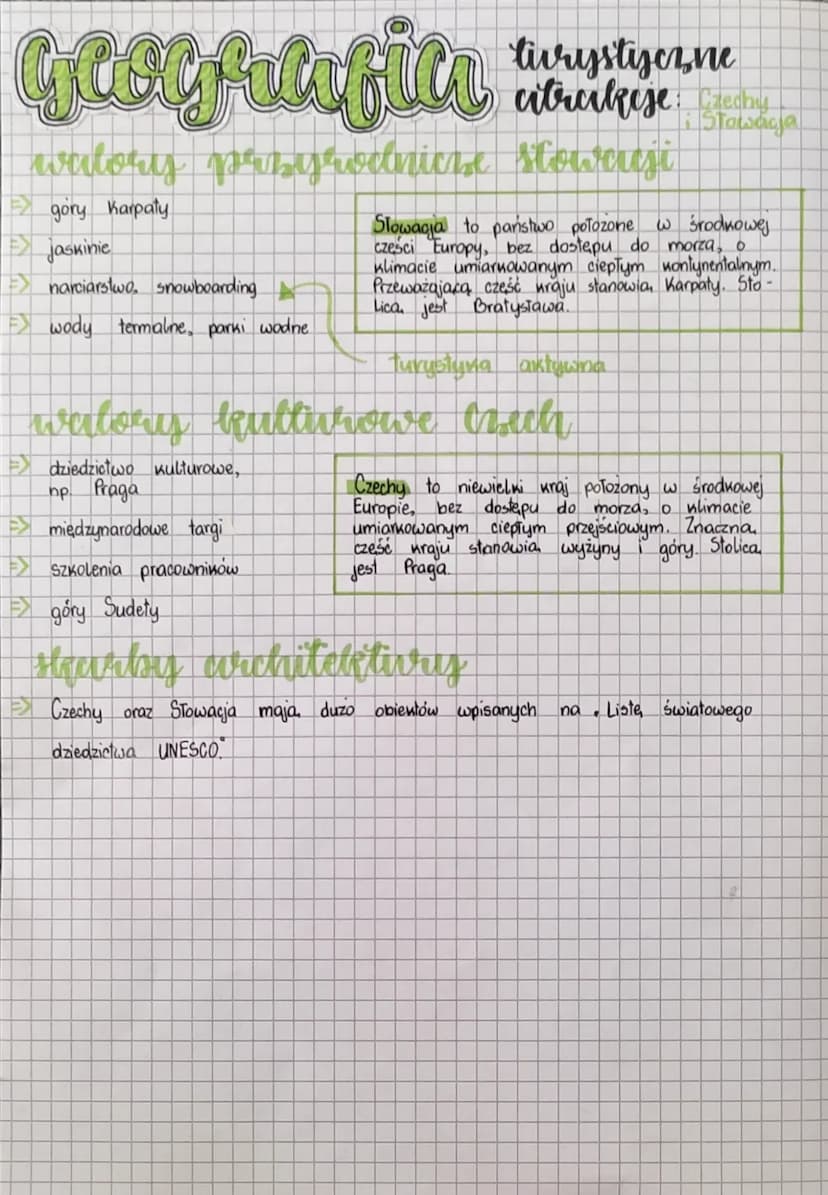 Geografia
turystyczne
atrakcje: Czechy
i Słowacja
walory przyrodnicze Słowacji
=> góry Karpaty
=> jaskinie
=> narciarstwo, snowboarding
=> wody termalne, parki wodne
Słowacja to państwo położone w środkowej
części Europy, bez dostępu do morza, o
klimacie umiarkowanym ciepłym kontynentalnym.
Przeważającą cześć kraju stanowią Karpaty. Sto-
licą jest Bratysława.
turystyka aktywna
walory kulturowe Czech
=> dziedzictwo kulturowe,
np. Praga
=> międzynarodowe targi
=> szkolenia pracowników
=> góry Sudety
Czechy to niewielki kraj położony w środkowej
Europie, bez dostępu do morza, o klimacie
umiarkowanym ciepłym przejściowym. Znaczną
cześć kraju stanowią wyżyny i góry. Stolicą
jest Praga.
skarby architektury
=> Czechy oraz Słowacja mają dużo obiektów wpisanych na „Listę światowego
dziedzictwa UNESCO."